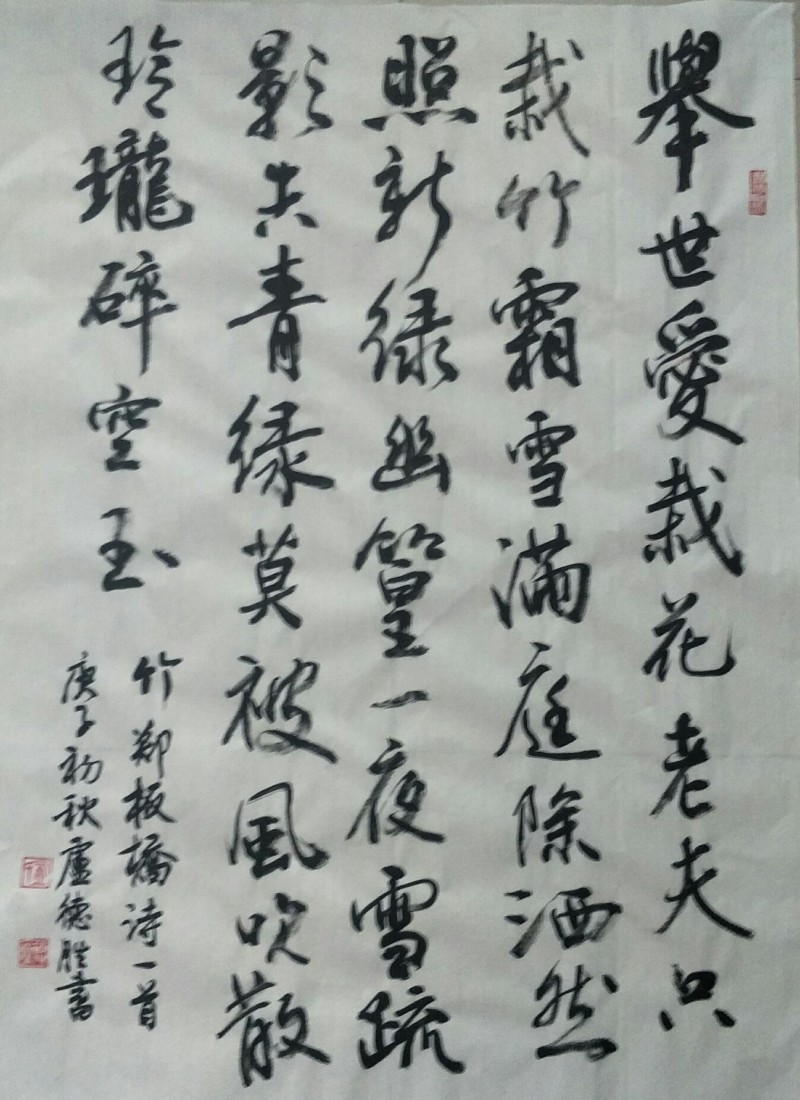 舉世愛栽花老夫只
栽竹霜雪滿庭除洒然
照新绿幽篁一夜雪疏
影失青绿莫被風吹散
玲瓏碎空玉
竹鄭板橋詩一首
庚子初秋盧德胜書